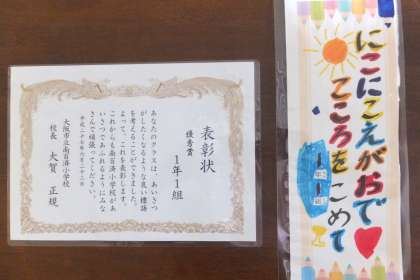 表彰状
優秀賞
1年1組
あなたのクラスは、あいさつ
がしたくなるような良い標語
を考えることができました。
よって、これを表彰します。
これからも南百済小学校があ
いさつであふれるようにみな
さんで頑張ってください。
平成二十七年六月二十二日
大阪市立南百済小学校
校長 大賀 正規
にこにこえがおで
こころをこめて
1年1組